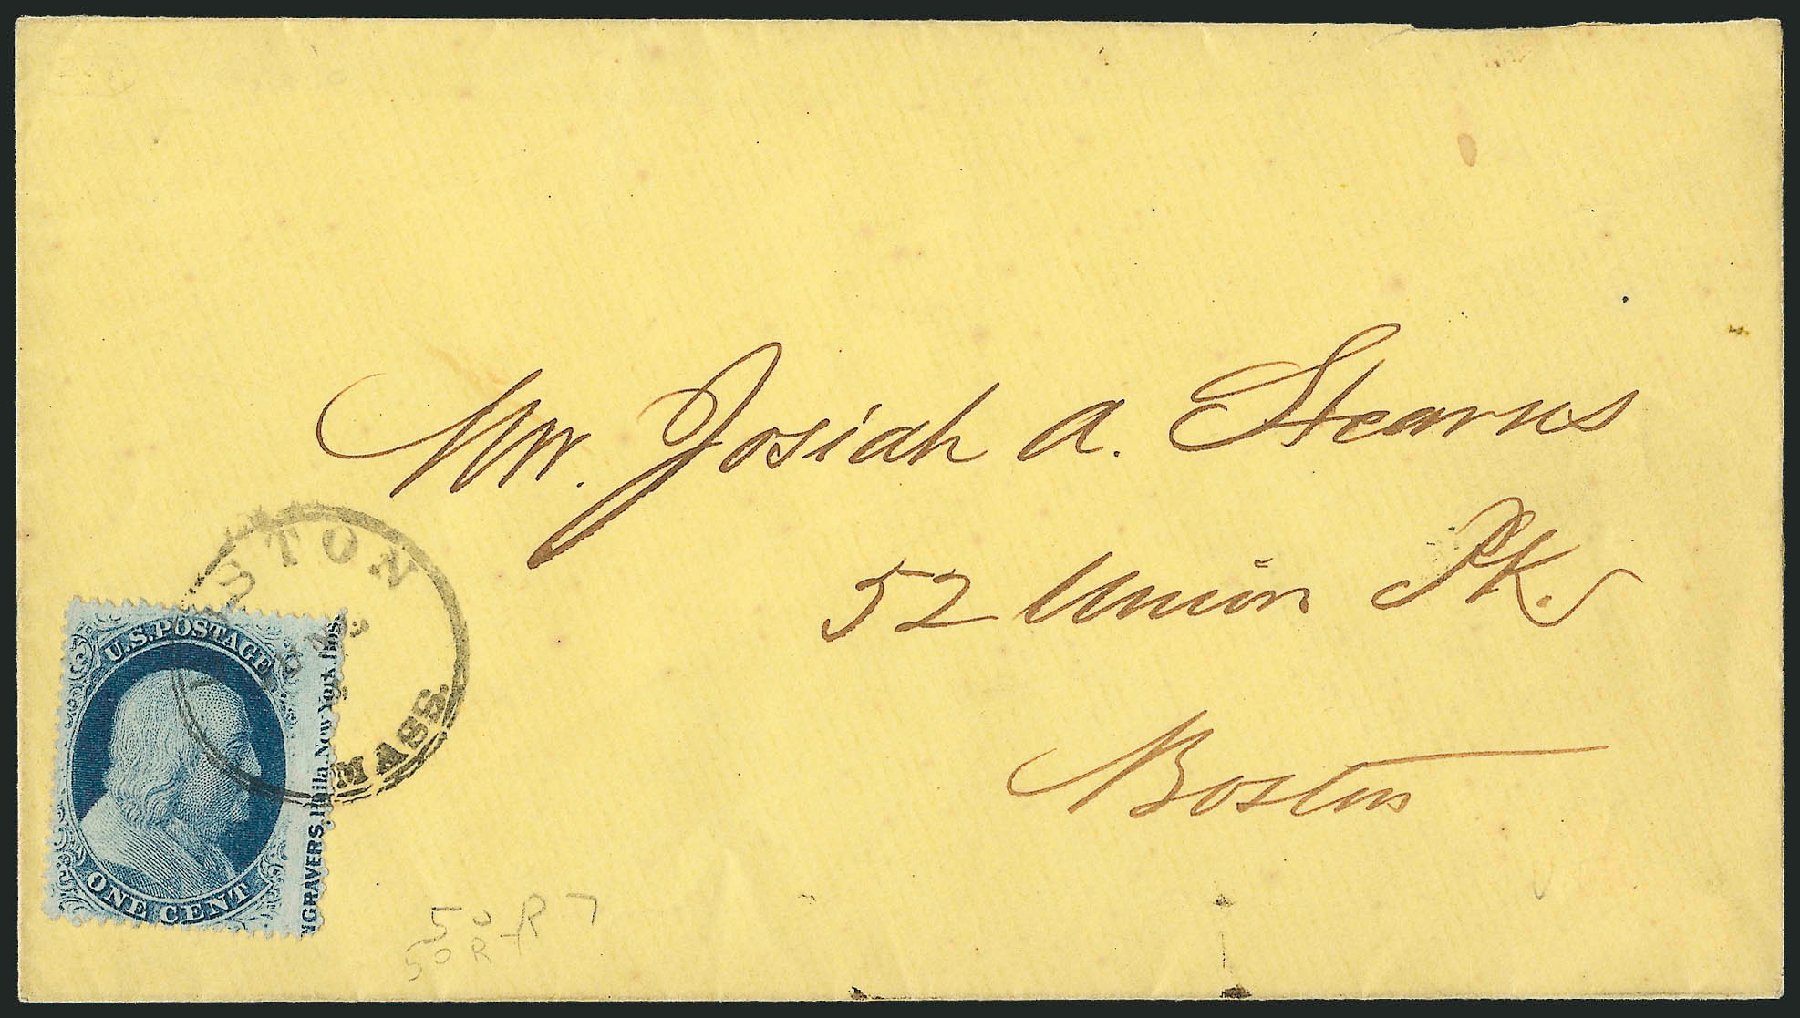 Mr. Josiah A. Stearns
52 Union Pk.
Boston
STON
MASS.
U.S. POSTAGE
ONE CENT
NGRAVERS, Phila. New York, Bos
50 R 7
50 R 7